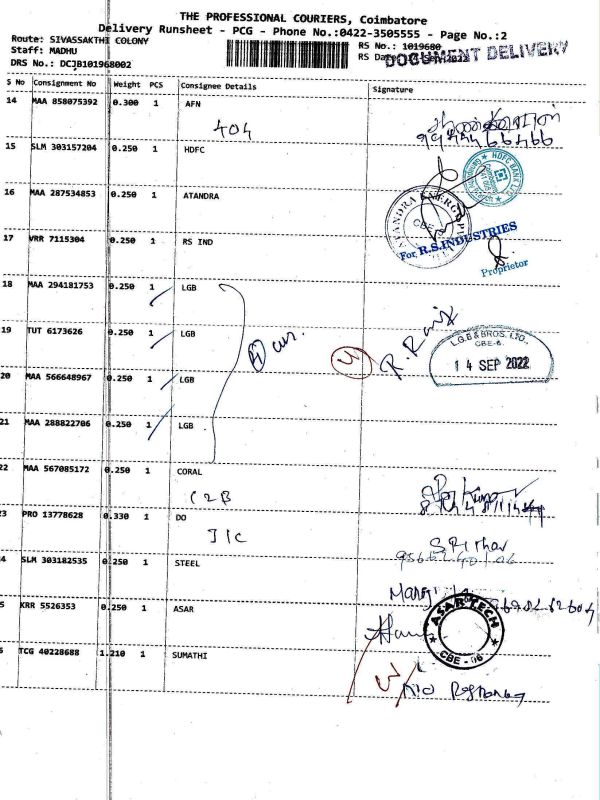 THE PROFESSIONAL COURIERS, Coimbatore
Delivery Runsheet - PCG - Phone No.:0422-3505555 - Page No.:2
Route: SIVASSAKTHI COLONY
Staff: MADHU
DRS No.: DCJB101968002
RS No.: 1019680
RS Date
DOCUMENT DELIVERY
S No Consignment No Weight PCS Consignee Details Signature
14 MAA 858075392 0.300 1 AFN
404
15 SLM 303157204 0.250 1 HDFC
HDFC BANK LTD
16 MAA 287534853 0.250 1 ATANDRA
ATANDRA ENERGY
CBE
17 VRR 7115304 0.250 1 RS IND
For R.S.INDUSTRIES
Proprietor
18 MAA 294181753 0.250 1 LGB
19 TUT 6173626 0.250 1 LGB
L.G.B & BROS. LTD.
CBE-6.
14 SEP 2022
20 MAA 566648967 0.250 1 LGB
21 MAA 288822706 0.250 1 LGB
22 MAA 567085172 0.250 1 CORAL
C2B
3 PRO 13778628 0.330 1 DO
JIC
4 SLM 303182535 0.250 1 STEEL
5 KRR 5526353 0.250 1 ASAR
ASAR TECH
CBE - 06
TCG 40228688 1.210 1 SUMATHI